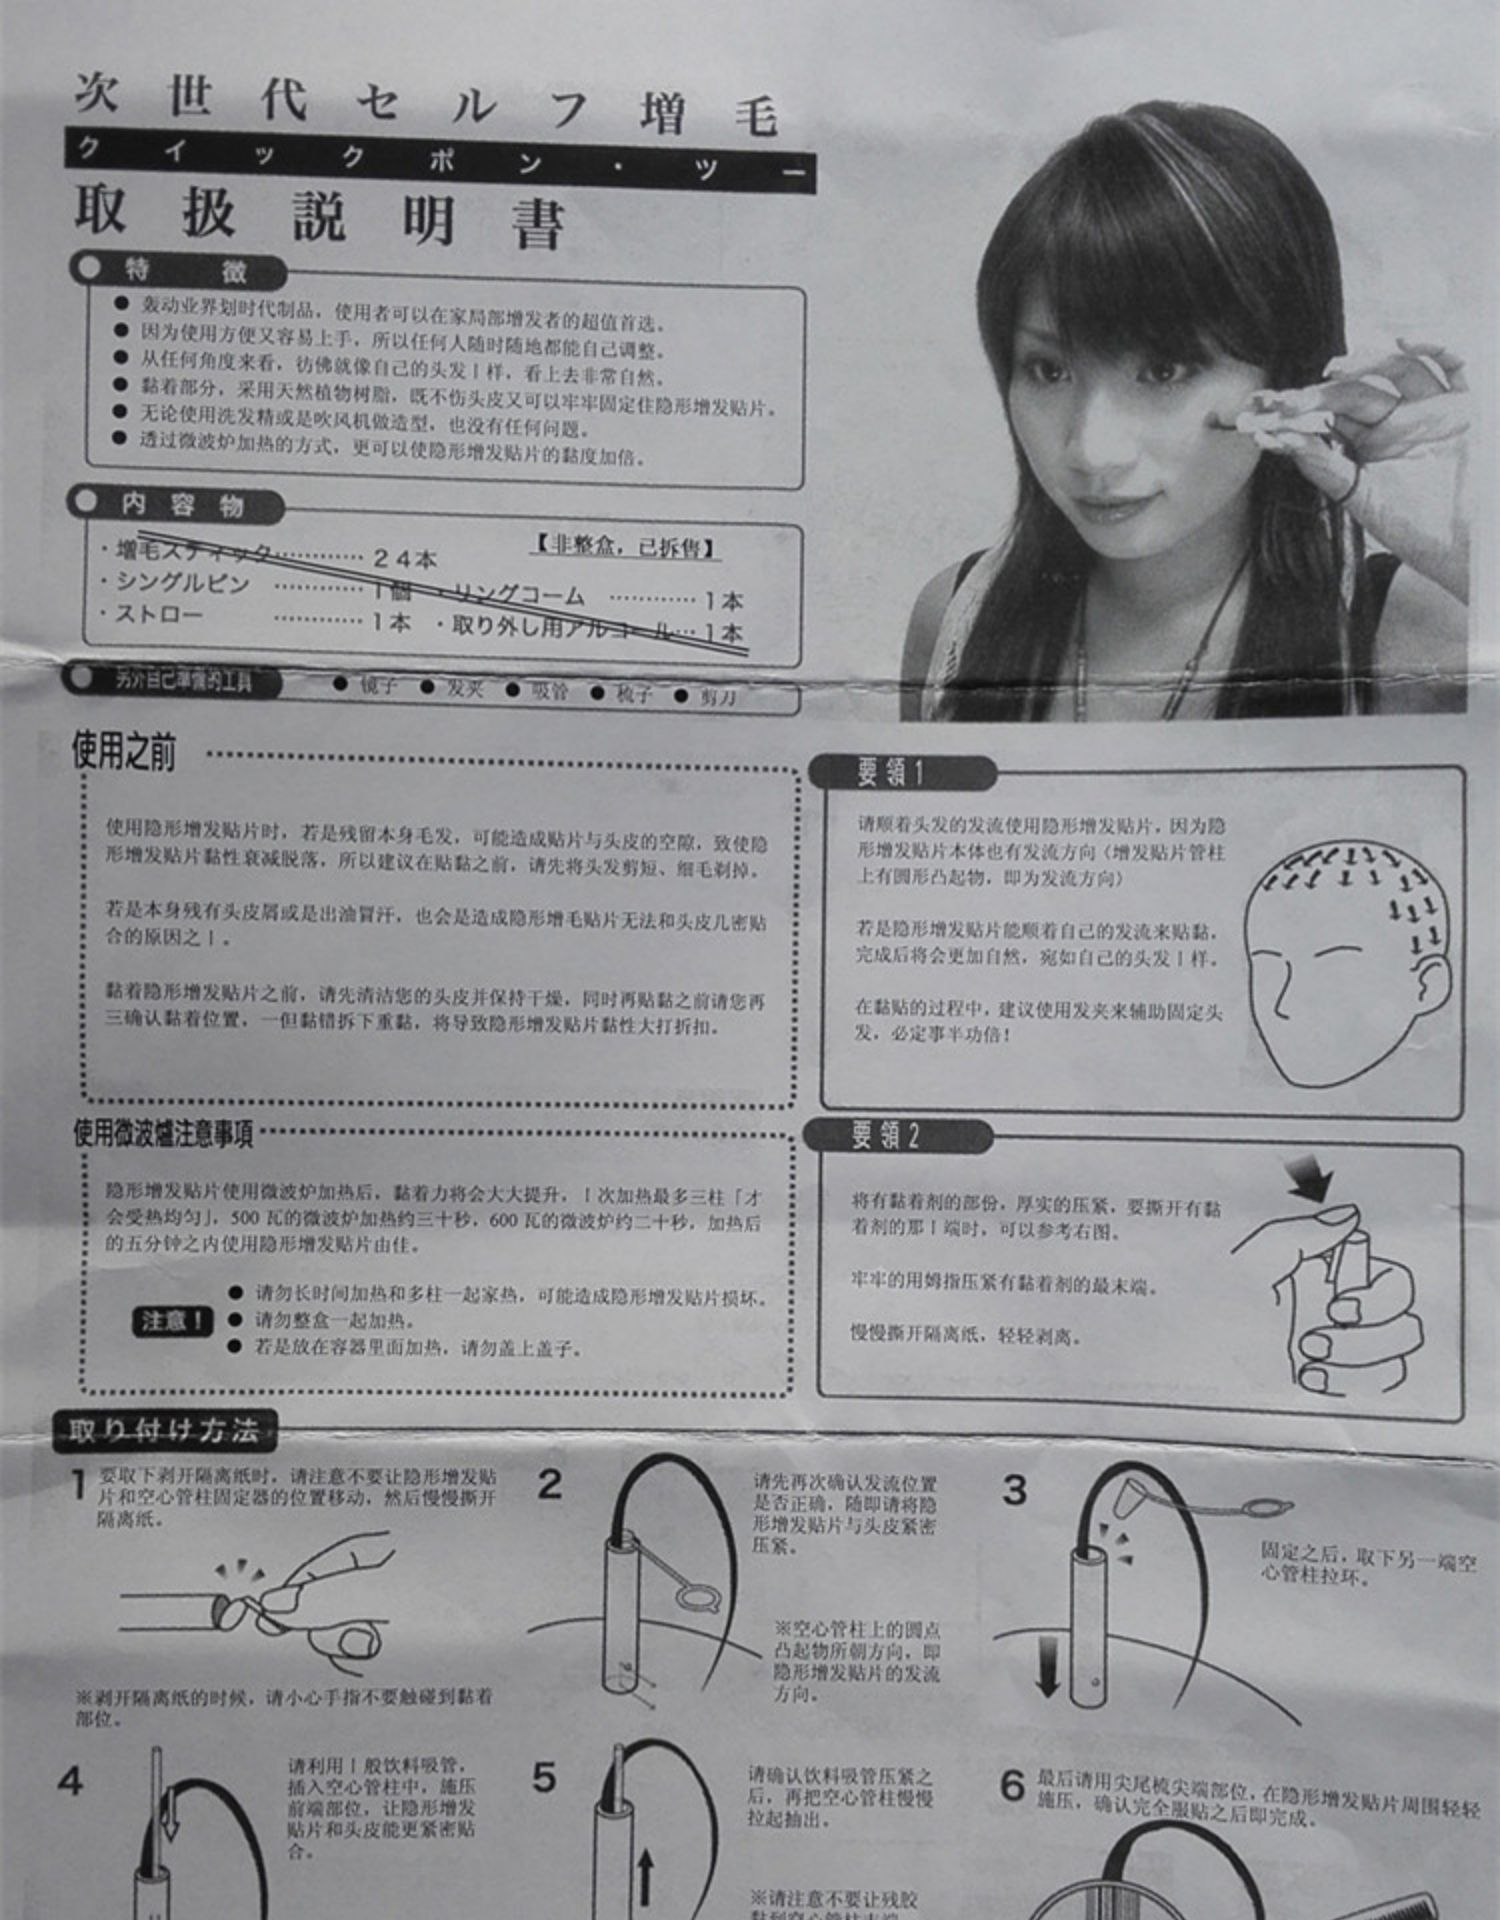 次世代セルフ増毛
クイックポン・ツー
取扱説明書
特徴
● 轰动业界划时代制品，使用者可以在家局部增发者的超值首选。
● 因为使用方便又容易上手，所以任何人随时随地都能自己调整。
● 从任何角度来看，彷佛就像自己的头发丨样，看上去非常自然。
● 黏着部分，采用天然植物树脂，既不伤头皮又可以牢牢固定住隐形增发贴片。
● 无论使用洗发精或是吹风机做造型，也没有任何问题。
● 透过微波炉加热的方式，更可以使隐形增发贴片的黏度加倍。
内容物
【非整盒，已拆售】
・増毛スティック…………24本
・シングルピン …………1個 ・リングコーム …………1本
・ストロー …………1本 ・取り外し用アルコール…1本
另外自己準備的工具 ● 镜子 ● 发夹 ● 吸管 ● 梳子 ● 剪刀
使用之前
使用隐形增发贴片时，若是残留本身毛发，可能造成贴片与头皮的空隙，致使隐
形增发贴片黏性衰减脱落，所以建议在贴黏之前，请先将头发剪短、细毛剃掉。
若是本身残有头皮屑或是出油冒汗，也会是造成隐形增毛贴片无法和头皮几密贴
合的原因之丨。
黏着隐形增发贴片之前，请先清洁您的头皮并保持干燥，同时再贴黏之前请您再
三确认黏着位置，一但黏错拆下重黏，将导致隐形增发贴片黏性大打折扣。
要領1
请顺着头发的发流使用隐形增发贴片，因为隐
形增发贴片本体也有发流方向（增发贴片管柱
上有圆形凸起物，即为发流方向）
若是隐形增发贴片能顺着自己的发流来贴黏，
完成后将会更加自然，宛如自己的头发丨样。
在黏贴的过程中，建议使用发夹来辅助固定头
发，必定事半功倍！
使用微波爐注意事項
隐形增发贴片使用微波炉加热后，黏着力将会大大提升，丨次加热最多三柱「才
会受热均匀」，500 瓦的微波炉加热约三十秒，600 瓦的微波炉约二十秒，加热后
的五分钟之内使用隐形增发贴片由佳。
注意！
● 请勿长时间加热和多柱一起家热，可能造成隐形增发贴片损坏。
● 请勿整盒一起加热。
● 若是放在容器里面加热，请勿盖上盖子。
要領2
将有黏着剂的部份，厚实的压紧，要撕开有黏
着剂的那丨端时，可以参考右图。
牢牢的用姆指压紧有黏着剂的最末端。
慢慢撕开隔离纸，轻轻剥离。
取り付け方法
1 要取下剥开隔离纸时，请注意不要让隐形增发贴
片和空心管柱固定器的位置移动，然后慢慢撕开
隔离纸。
※剥开隔离纸的时候，请小心手指不要触碰到黏着
部位。
2 请先再次确认发流位置
是否正确，随即请将隐
形增发贴片与头皮紧密
压紧。
※空心管柱上的圆点
凸起物所朝方向，即
隐形增发贴片的发流
方向。
3
固定之后，取下另一端空
心管柱拉环。
4 请利用丨般饮料吸管，
插入空心管柱中，施压
前端部位，让隐形增发
贴片和头皮能更紧密贴
合。
5 请确认饮料吸管压紧之
后，再把空心管柱慢慢
拉起抽出。
※请注意不要让残胶
6 最后请用尖尾梳尖端部位，在隐形增发贴片周围轻轻
施压，确认完全服贴之后即完成。